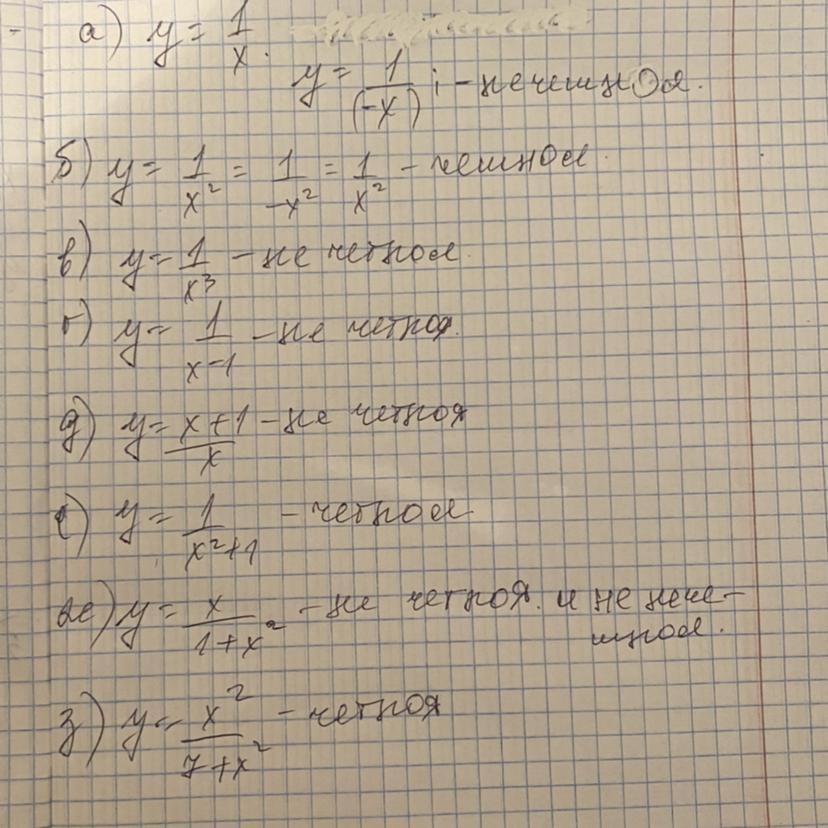 а) y = 1/x.
y = 1/(-x) ; - нечетная.
б) y = 1/x² = 1/-x² = 1/x² - четная.
в) y = 1/x³ - не четная.
г) y = 1/x-1 - не четная.
д) y = x+1/x - не четная
е) y = 1/x²+1 - четная
ж) y = x/1+x² - не четная. и не нече-
тная.
з) y = x²/7+x² - четная